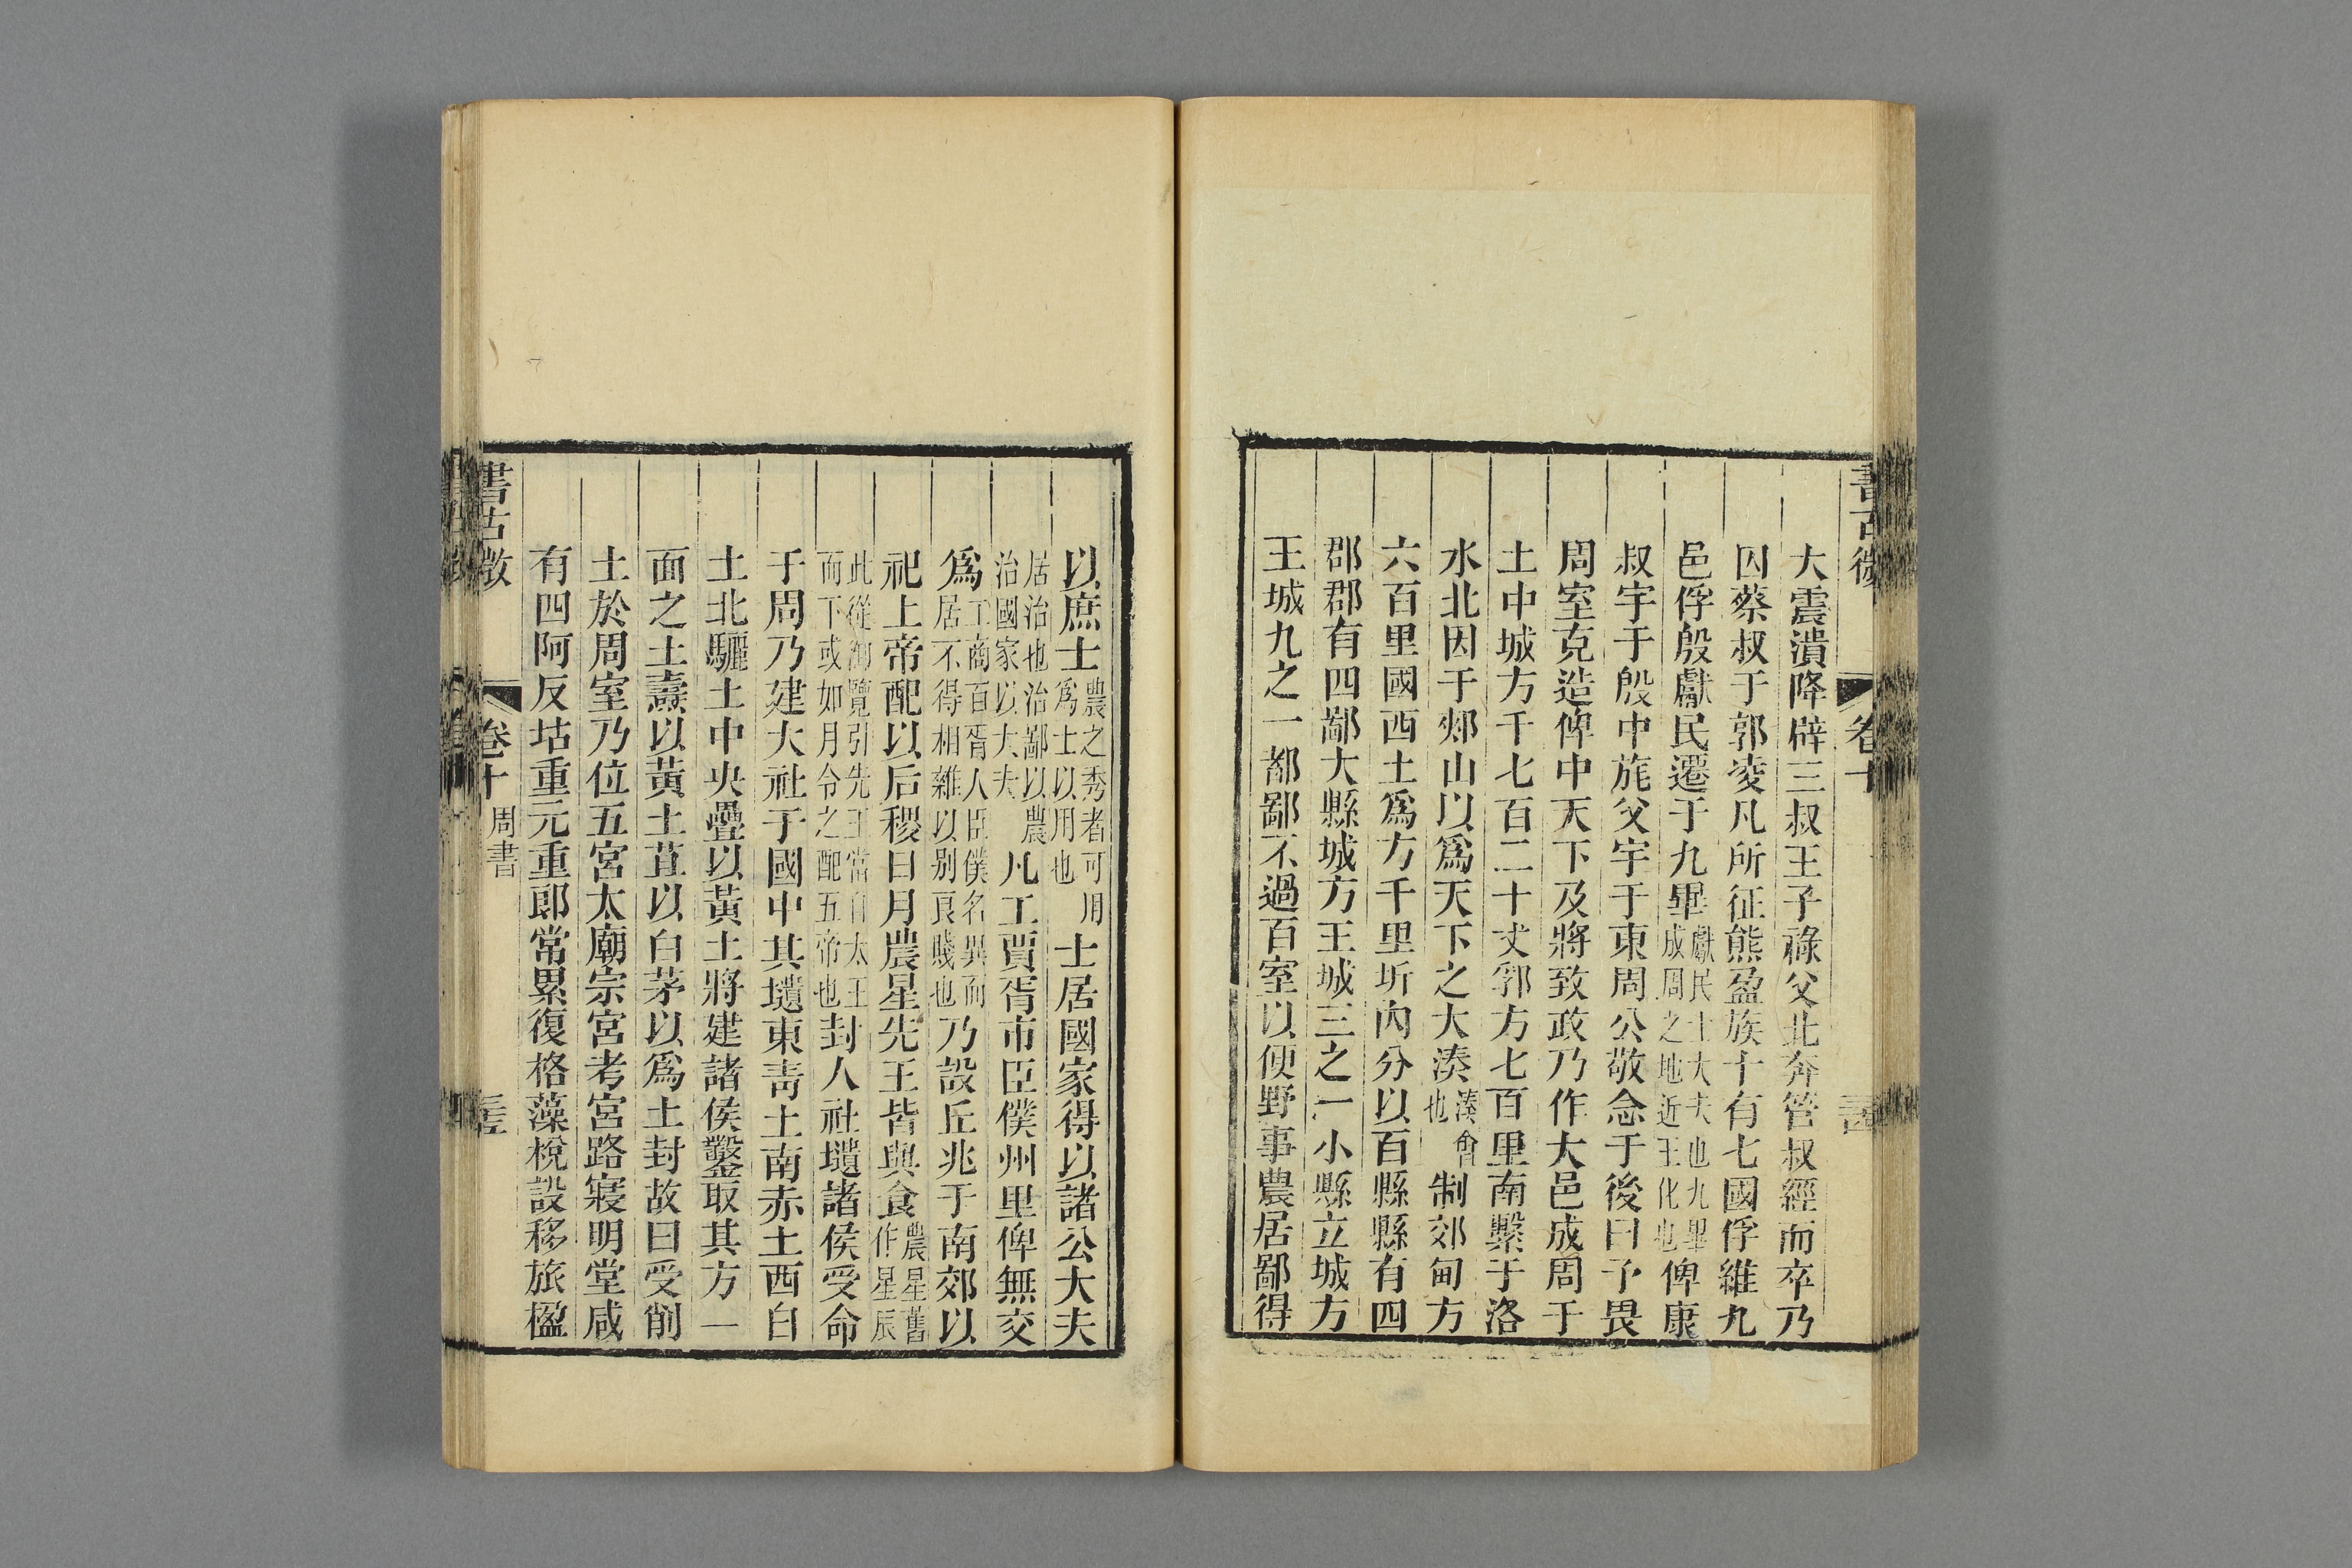 書古微
卷十
大震潰降辟三叔王子祿父北奔管叔經而卒乃
囚蔡叔于郭凌凡所征熊盈族十有七國俘維九
邑俘殷獻民遷于九畢獻民士大夫也九畢成周之地近王化也俾康
叔宇于殷中旄父宇于東周公敬念于後曰予畏
周室克造俾中天下及將致政乃作大邑成周于
土中城方千七百二十丈郛方七百里南繫于洛
水北因于郟山以爲天下之大湊湊會也制郊甸方
六百里國西土爲方千里圻內分以百縣縣有四
郡郡有四鄙大縣城方王城三之一小縣立城方
王城九之一都鄙不過百室以便野事農居鄙得
以庶士農之秀者可用爲士以用也士居國家得以諸公大夫
居治也治鄙以農治國家以大夫凡工賈胥市臣僕州里俾無交
爲工商百胥人臣僕名異而居不得相雜以別良賤也乃設丘兆于南郊以
祀上帝配以后稷日月農星先王皆與食農星舊作星辰
此從御覽引先王當自太王而下或如月令之配五帝也封人社壝諸侯受命
于周乃建大社于國中其壝東青土南赤土西白
土北驪土中央疊以黃土將建諸侯鑿取其方一
面之土燾以黃土苴以白茅以爲土封故曰受削
土於周室乃位五宮太廟宗宮考宮路寢明堂咸
有四阿反坫重元重郎常累復格藻梲設移旅楹
書古微
卷十
周書